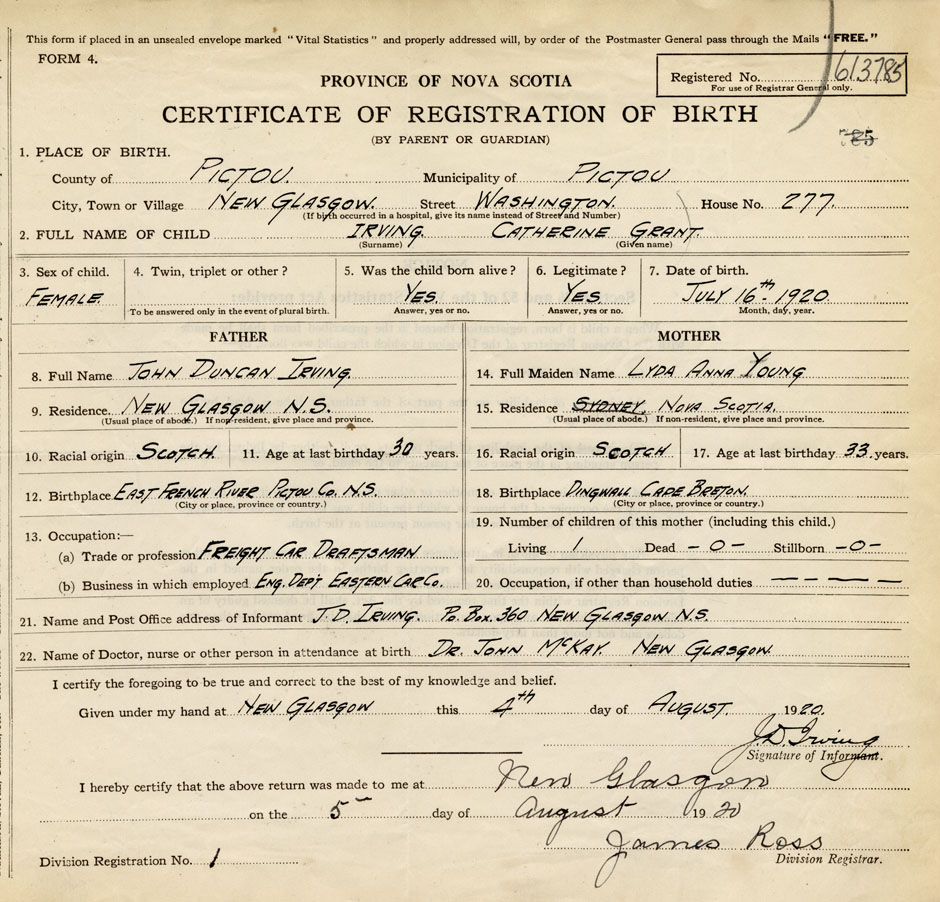 This form if placed in an unsealed envelope marked "Vital Statistics" and properly addressed will, by order of the Postmaster General pass through the Mails "FREE."
FORM 4.
Registered No. 613785
For use of Registrar General only.
PROVINCE OF NOVA SCOTIA
CERTIFICATE OF REGISTRATION OF BIRTH
(BY PARENT OR GUARDIAN)
1. PLACE OF BIRTH.
County of PICTOU. Municipality of PICTOU
City, Town or Village NEW GLASGOW. Street WASHINGTON. House No. 277.
(If birth occurred in a hospital, give its name instead of Street and Number)
2. FULL NAME OF CHILD IRVING. CATHERINE GRANT.
(Surname) (Given name)
3. Sex of child. 4. Twin, triplet or other? 5. Was the child born alive? 6. Legitimate? 7. Date of birth.
FEMALE. YES. YES. JULY 16th 1920
To be answered only in the event of plural birth. Answer, yes or no. Answer, yes or no. Month, day, year.
FATHER MOTHER
8. Full Name JOHN DUNCAN IRVING 14. Full Maiden Name LYDA ANNA YOUNG
9. Residence. NEW GLASGOW N.S. 15. Residence SYDNEY, NOVA SCOTIA.
(Usual place of abode.) If non-resident, give place and province. (Usual place of abode.) If non-resident, give place and province.
10. Racial origin SCOTCH. 11. Age at last birthday 30 years. 16. Racial origin SCOTCH 17. Age at last birthday 33. years.
12. Birthplace EAST FRENCH RIVER PICTOU CO. N.S. 18. Birthplace DINGWALL CAPE BRETON.
(City or place, province or country.) (City or place, province or country.)
19. Number of children of this mother (including this child.)
13. Occupation:—
(a) Trade or profession FREIGHT CAR DRAFTSMAN Living 1 Dead -0- Stillborn -0-
(b) Business in which employed ENG. DEP'T EASTERN CAR CO. 20. Occupation, if other than household duties — — — —
21. Name and Post Office address of Informant J.D. IRVING. P.O. BOX. 360 NEW GLASGOW N.S.
22. Name of Doctor, nurse or other person in attendance at birth DR. JOHN McKAY. NEW GLASGOW.
I certify the foregoing to be true and correct to the best of my knowledge and belief.
Given under my hand at NEW GLASGOW this 4th day of AUGUST. 1920.
J.D. Irving
Signature of Informant.
I hereby certify that the above return was made to me at New Glasgow
on the 5 day of August 1920
James Ross
Division Registration No. 1 Division Registrar.